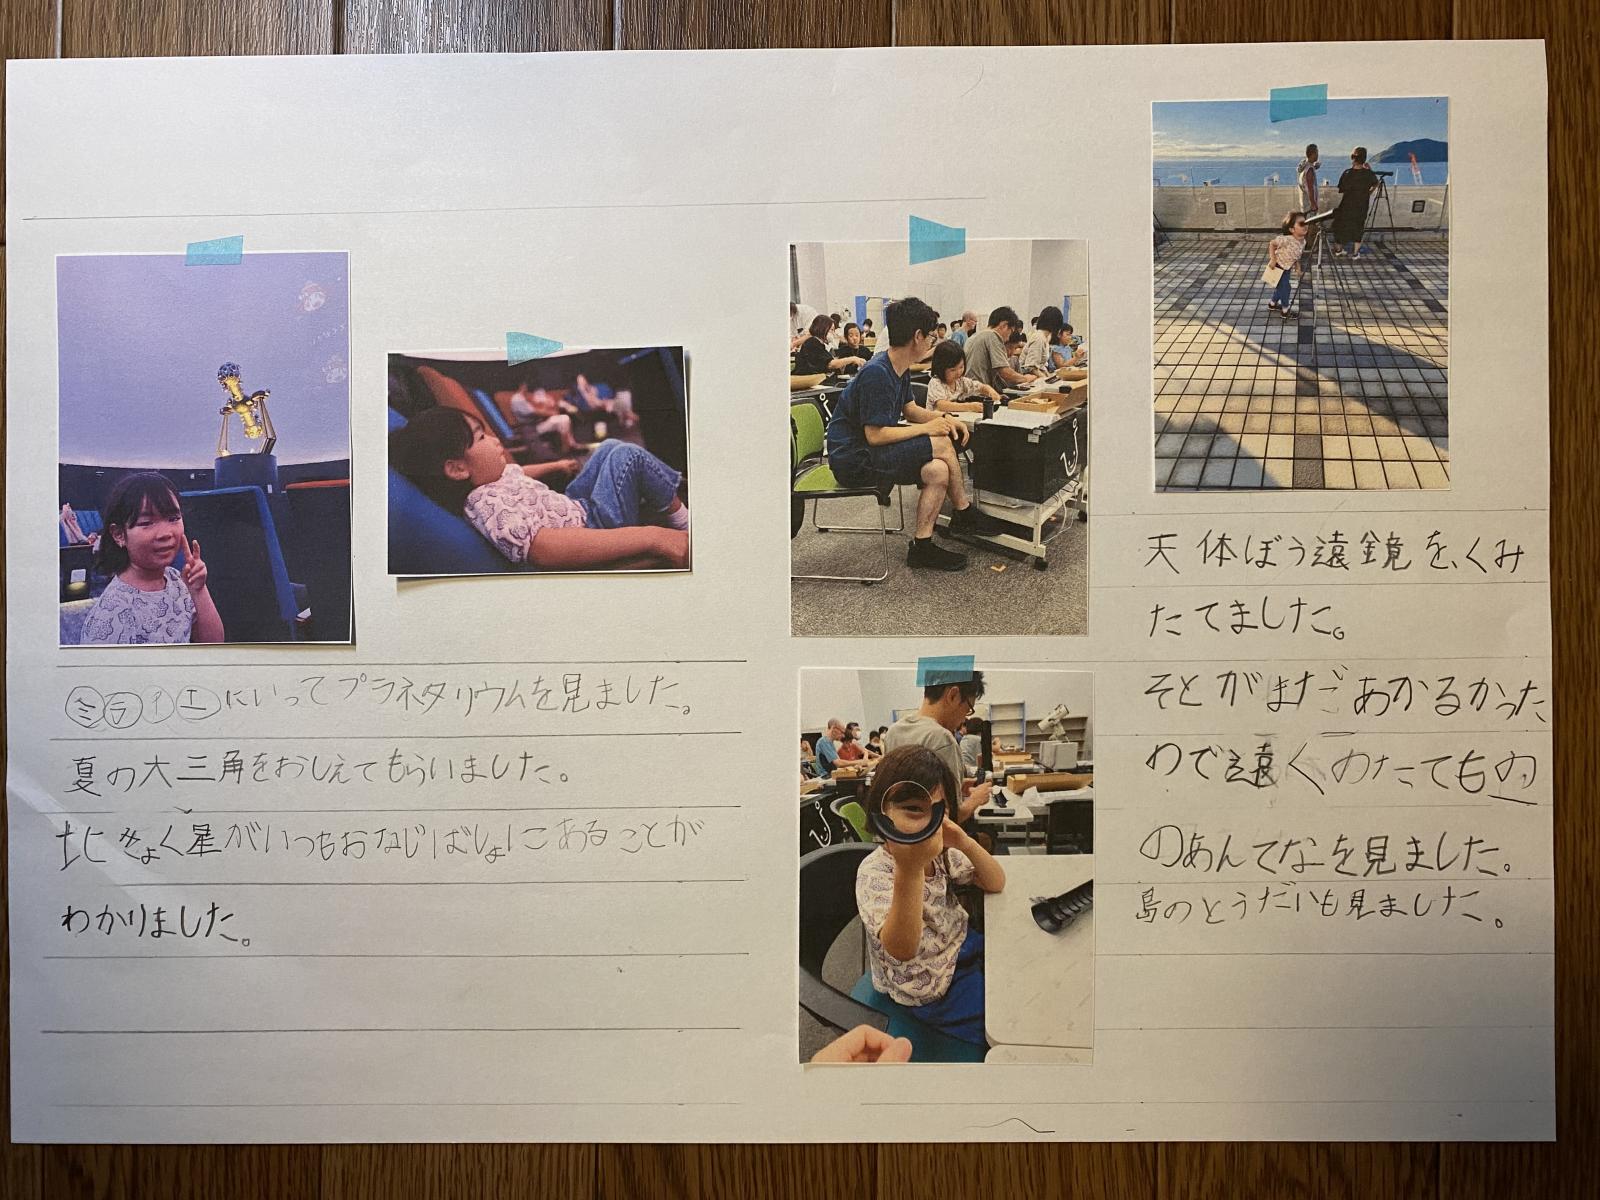 ミライエにいってプラネタリウムを見ました。
夏の大三角をおしえてもらいました。
北きょく星がいつもおなじばしょにあることが
わかりました。
天体ぼう遠鏡を、くみ
たてました。
そとがまだあかるかった
わで遠くのたてもの
のあんてなを見ました。
島のとうだいも見ました。